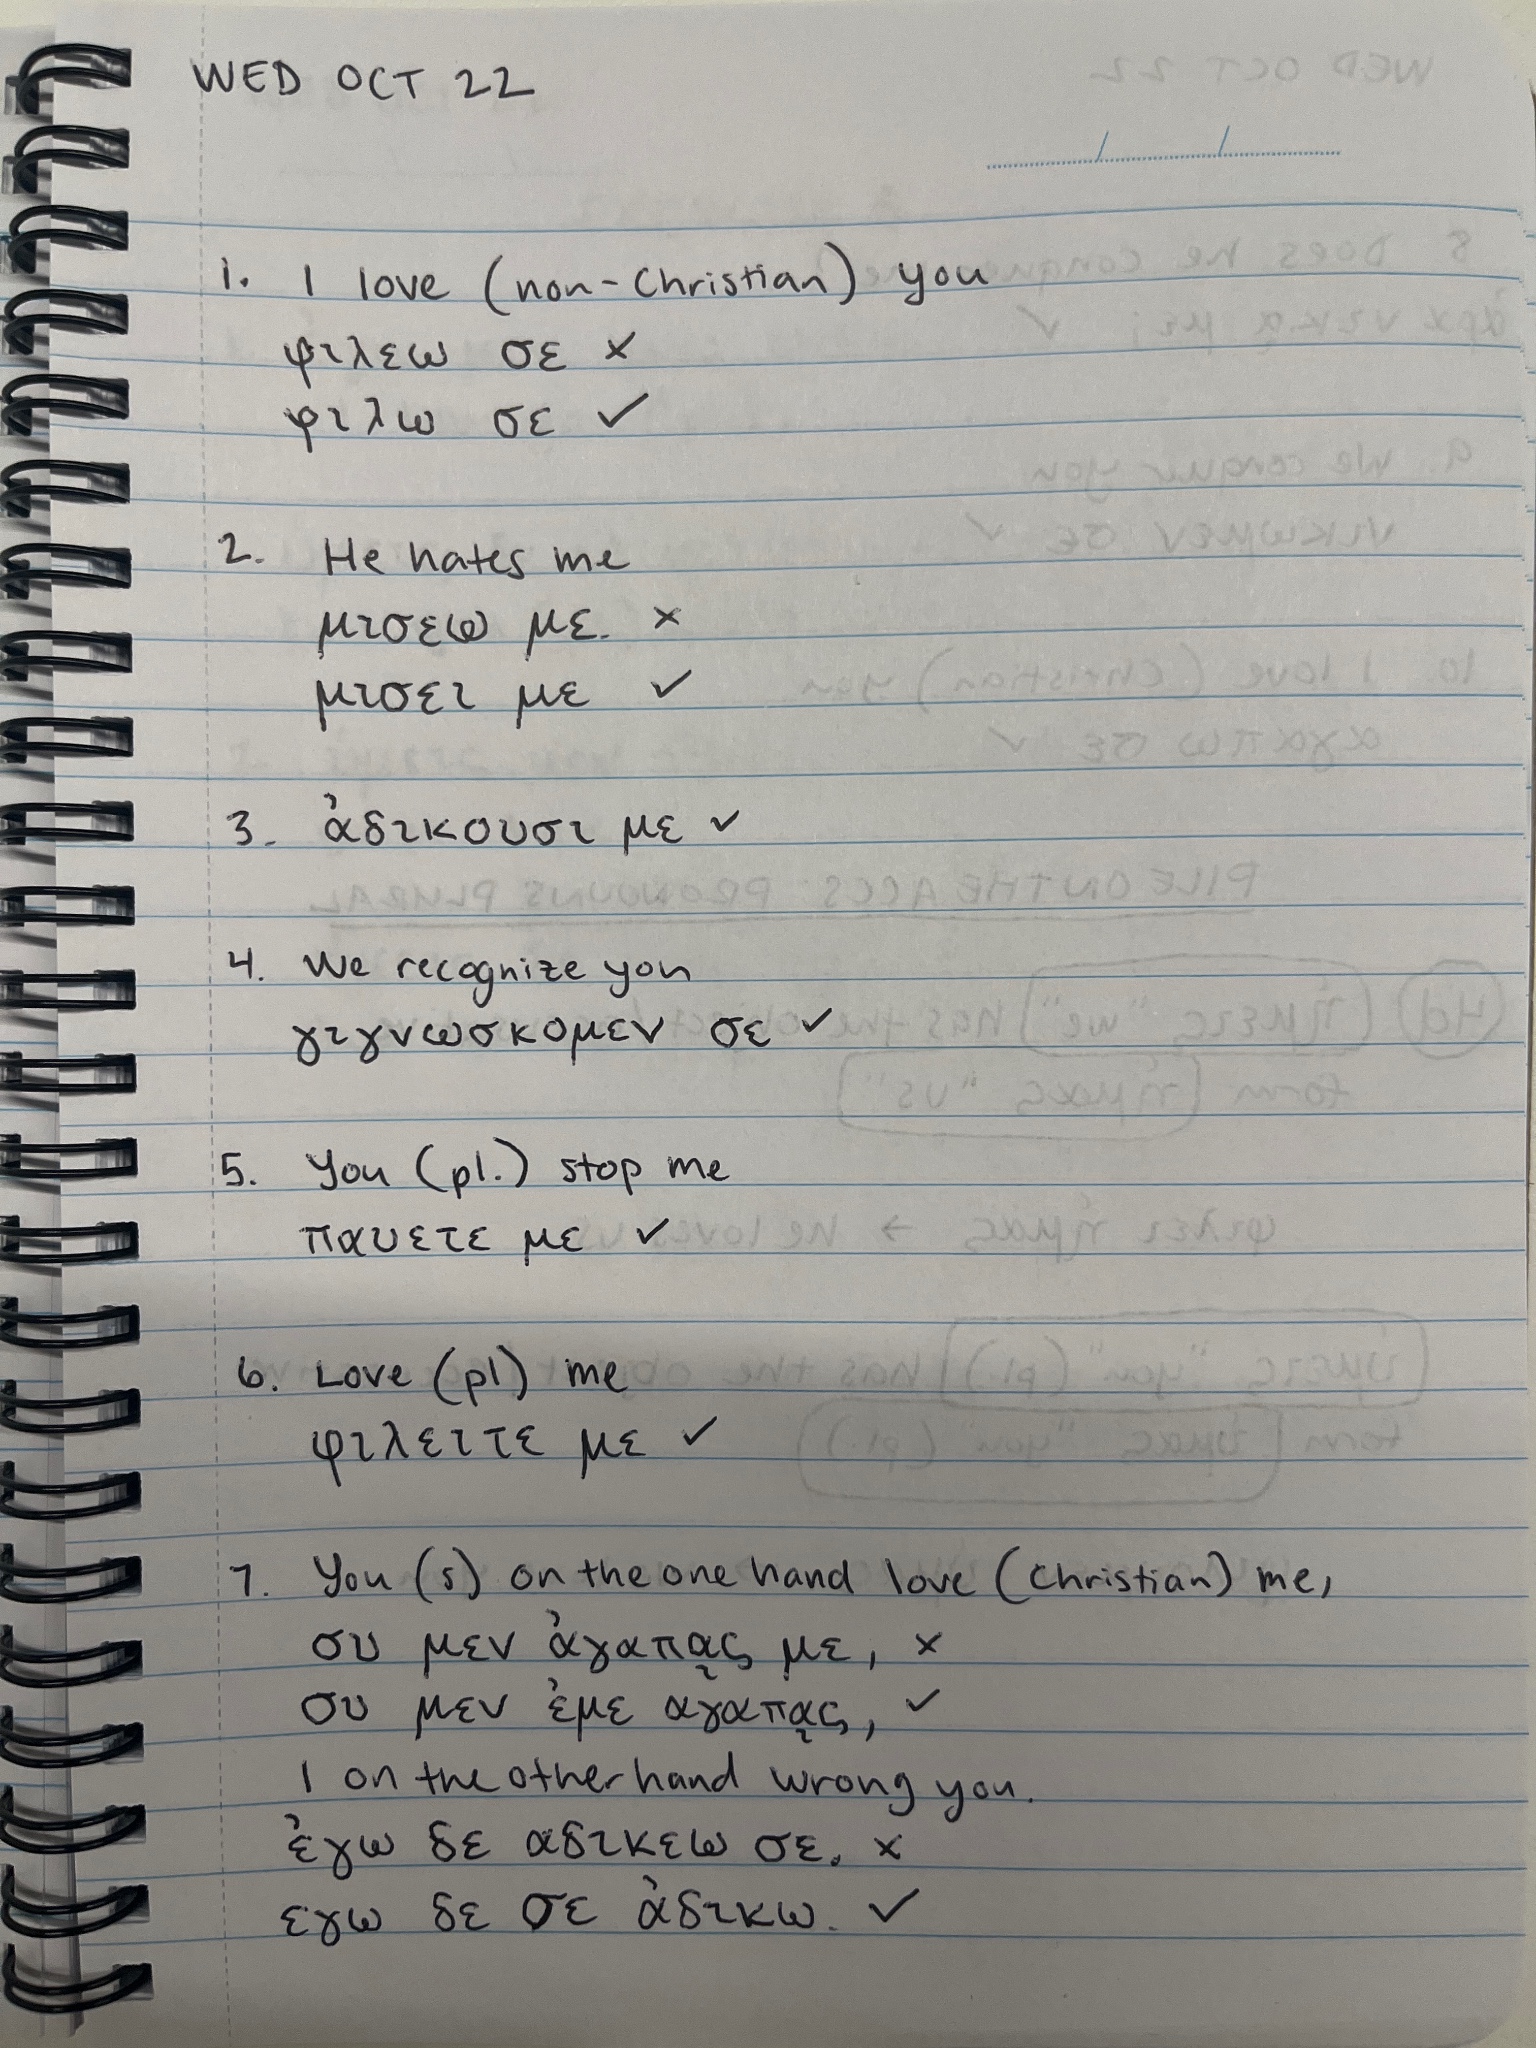 WED OCT 22
1. I love (non-Christian) you
φιλεω σε ×
φιλω σε ✓
2. He hates me
μισεω με. ×
μισει με ✓
3. ἀδικουσι με ✓
4. We recognize you
γιγνωσκομεν σε ✓
5. You (pl.) stop me
παυετε με ✓
6. Love (pl) me
φιλειτε με ✓
7. You (s) on the one hand love (Christian) me,
συ μεν ἀγαπᾳς με, ×
συ μεν ἐμε αγαπᾳς, ✓
I on the other hand wrong you.
ἐγω δε αδικεω σε. ×
εγω δε σε ἀδικω. ✓